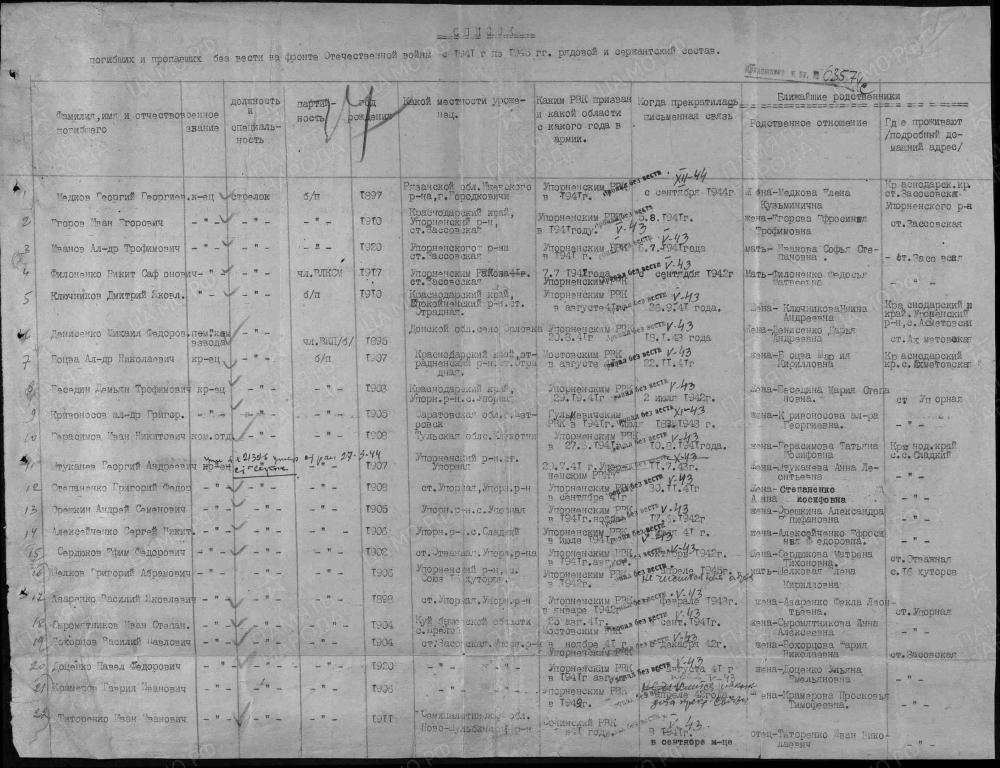 СПИСОК
погибших и пропавших без вести на фронте Отечественной войны с 1941 г по 1945 гг. рядовой и сержантский состав.
63574с
Фамилия, имя и отчество погибшего
военное звание
должность и специальность
партийность
год рождения
Какой местности уроженец.
Каким РВК призван и какой области с какого года в армии.
Когда прекратилась письменная связь
Ближайшие родственники
Родственное отношение
Где проживают /подробный домашний адрес/
1 Медков Георгий Георгиев. к-ец стрелок б/п 1897 Рязанской обл. р-на, г. Городковичи Упорненским РВК в 1941г. пропал без вести XII-44 с сентября 1944г жена-Медкова Елена Кузьминична Краснодарск.кр. ст.Засовская Упорненского р-а
2 Егоров Иван Егорович -"- -"- -"- 1910 Краснодарский край, Упорненский р-н, ст.Засовская Упорненским РВК в 1941году. 5.8.1941г. V-43 жена-Егорова Ефросиния Трофимовна ст.Засовская
3 Иванов Ал-др Трофимович -"- -"- -"- 1920 Упорненского р-на ст.Засовская Упорненским РВК в 1941г V-43 .7.1941года мать-Иванова Софья Степановна - ст.Засовская
4 Филоненко Никит Сафонович -"- -"- чл.ВЛКСМ 1917 Упорненским ст.Засовская 7.7 1941года Упорненским РВК V-43 сентября 1942г Мать-Филоненко Федосья Матвеевна -"-
5 Ключников Дмитрий Яковл. -"- -"- б/п 1910 Краснодарский край, Спокойненский р-н.ст. Отрадная. РВК в августе 41г. V-43 26.9.41 года. жена-Ключникова Нина Андреевна Краснодарский край. Упорненский р-н,с.Ахметовский
6 Денисенко Михаил Федоров. пом.ком взвода -"- чл.ВКП/б/ 1896 Донской обл.село Орловка Упорненским РВК 20.8.41г V-43 18.1.43 года жена-Денисенко Дарья Андреевна ст.Ахметовская
7 Боцва Ал-др Николаевич кр-ец -"- б/п 1907 Краснодарский край,отрадненский р-н.ст.отрадная. Мостовским РВК в августе V-43 22.11.41г жена-Боцва Мария Кирилловна Краснодарский кр.с.Ахметовская
8 Беседин Демьян Трофимович кр-ец -"- -"- 1903 Краснодарский край, Упорн.р-н.с.Упорная Упорненским РВК 29.9.41г V-43 2 июля 1942г. жена-Беседина Мария Степановна. ст Упорная
9 Кривоносов ал-др Григор. -"- -"- -"- 1906 Саратовская обл. Петровск Гулькевичским РВК в 1941г. XI-43 1943 г. жена-Кривоносова ал-ра Георгиевна. -"-
10 Герасимов Иван Никитович ком.отд. -"- -"- 1908 Тульская обл. Упорненским РВК в 27.6.1941г V-43 10.8.41года. жена-Герасимова Татьяна Иосифовна Краснод.край с.с.Сладкий
11 Штуканев Георгий Андреевич кр-ец -"- -"- 1907 Упорненский р-н.ст. Упорная 20.7.41г Упорненским РВК X-43 11.7.43г. жена-Штуканева Анна Леонтьевна -"-
12 Степаненко Григорий Федор -"- -"- -"- 1908 ст.Упорная,Упорн.р-н Упорненским РВК в сентябре 41г V-43 30.11.41г Жена-Степаненко Анна Иосифовна -"-
13 Орешкин Андрей Семенович -"- -"- -"- 1905 Упорн.р-н.с.Упорная Упорненским РВК в 1941г. V-43 1942г жена-Орешкина Александра Епифановна -"-
14 Алексейченко Сергей Никит. -"- -"- -"- 1906 Упорн.р-н.с.Сладкий Упорненским РВК в июле 1941г V-43 41 г. жена-Алексейченко Ефросиния Федоровна. -"-
15 Сердюков Ефим Федорович -"- -"- -"- 1902 ст.Отважная.Упорн.р-на Упорненским РВК в 1941г.август. V-43 1942г. жена-Сердюкова Матрена Тихоновна. ст.Отважная
16 Шелков Григорий Абрамович -"- -"- -"- 1906 Упорненский р-н,с. Союз 16 хуторов. Упорненским РВК в 1942г. апреле 1945г. мать-Шелковая Елена Кирилловна с.16 хуторов
17 Азаренко Василий Яковлевич -"- -"- -"- 1898 ст.Упорная.Упорн.р-н Упорненским РВК в январе 1942г. V-43 феврале 1943г. жена-Азаренко Фекла Леонтьевна. ст.Упорная
18 Сыромятников Иван Степан. -"- -"- -"- 1904 Куйбышевской области с. Упорненским РВК 25 авг.41г. V-43 сент.1941г. жена-Сыромятникова Анна Алексеевна -"-
19 Бохорцов Василий Павлович -"- -"- -"- 1904 ст.Засовская.Упорн.р-н Мостовским РВК в ноябре 41г V-43 в декабр 42г. жена-Бохорцова Мария Николаевна ст.Засовская
20 Доценко Павел Федорович -"- -"- -"- 1920 -"- Упорненским РВК в 1941г V-43 августа 41 г жена-Доценко Ульяна Емельяновна -"-
21 Крамеров Гаврил Иванович -"- -"- -"- 1906 -"- Упорненским РВК в 1942г. V-43 апреле жена-Крамерова Просковья Тимофеевна. -"-
22 Титоренко Иван Иванович -"- -"- -"- 1911 Семипалатинская обл. Ново-Шульбинский р-н Сочинский РВК 41 году. V-43 в 1941г. в сентябре м-це отец-Титоренко Иван Николаевич -"-